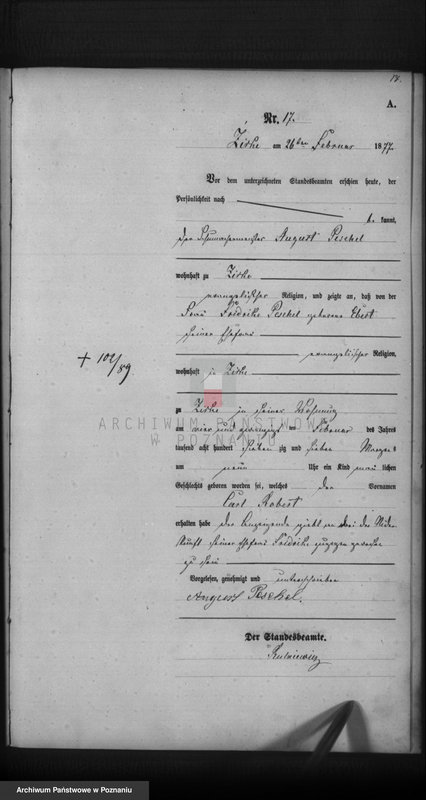 18.
A.
Nr. 17.
Zirke am 26ten Februar 1877.
Vor dem unterzeichneten Standesbeamten erschien heute, der
Persönlichkeit nach
be kannt,
der Schuhmachermeister August Peschel
wohnhaft zu Zirke
evangelischer Religion, und zeigte an, daß von der
Frau Friedrike Peschel geborene Ebert
seiner Ehefrau
evangelischer Religion,
wohnhaft in Zirke
+ 102/89
zu Zirke in seiner Wohnung
am vier und zwanzigsten Februar des Jahres
tausend acht hundert sieben zig und sieben Morgens
um neun Uhr ein Kind männlichen
Geschlechts geboren worden sei, welches den Vornamen
Carl Robert
erhalten habe der Anzeigende giebt an bei der Nieder
kunft seiner Ehefrau Friedrike zugegen gewesen
zu sein
Vorgelesen, genehmigt und unterschrieben
August Peschel.
Der Standesbeamte.
ARCHIWUM PAŃSTWOWE
W POZNANIU
Archiwum Państwowe w Poznaniu